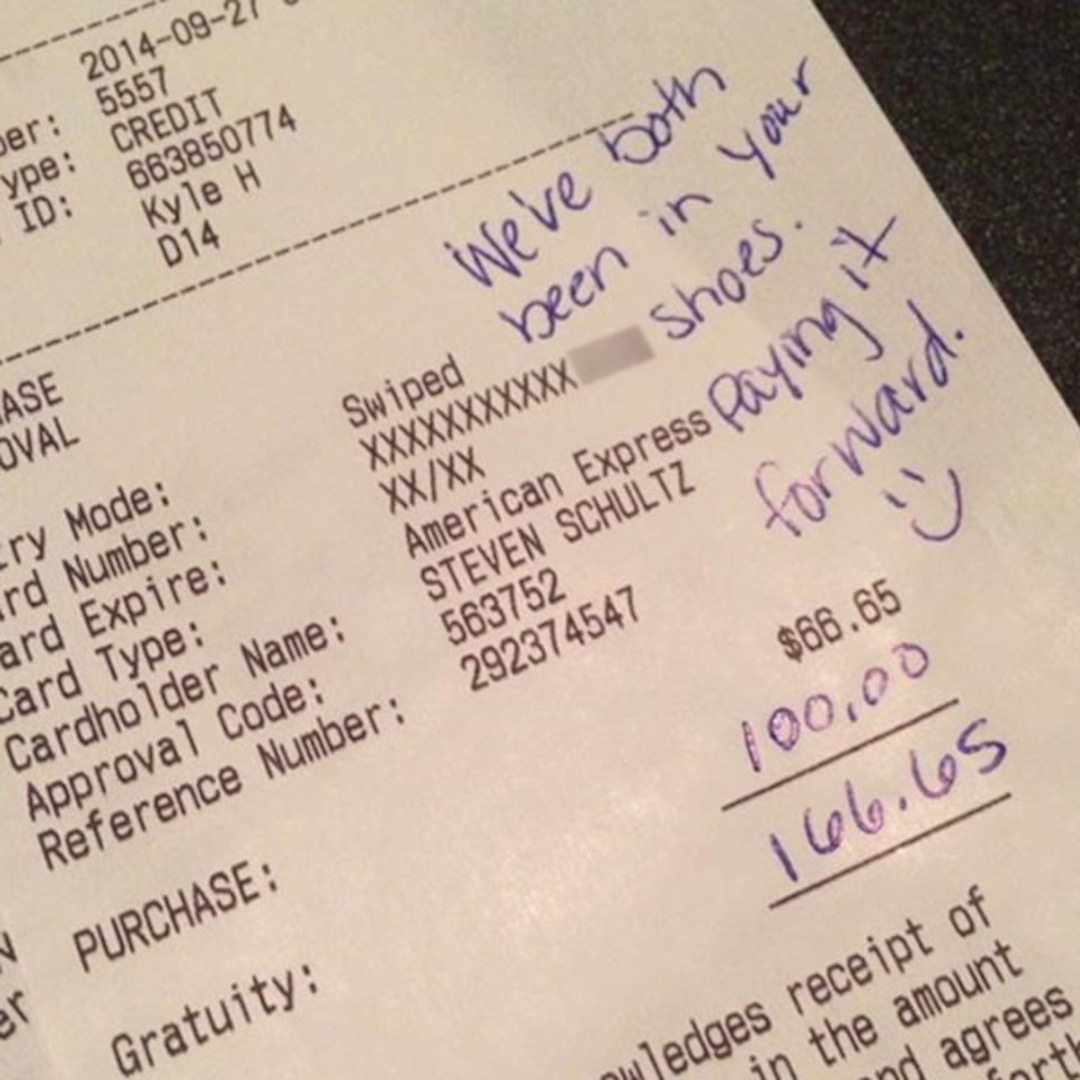 2014-09-27
ber: 5557
ype: CREDIT
ID: 663850774
Kyle H
D14
We've both
been in your
shoes.
Paying it
forward.
:)
ASE
OVAL
try Mode: Swiped
rd Number: XXXXXXXXXXX
ard Expire: XX/XX
Card Type: American Express
Cardholder Name: STEVEN SCHULTZ
Approval Code: 563752
Reference Number: 292374547
PURCHASE: $66.65
Gratuity: 100.00
166.65
N
er
owledges receipt of
in the amount
and agrees
forth